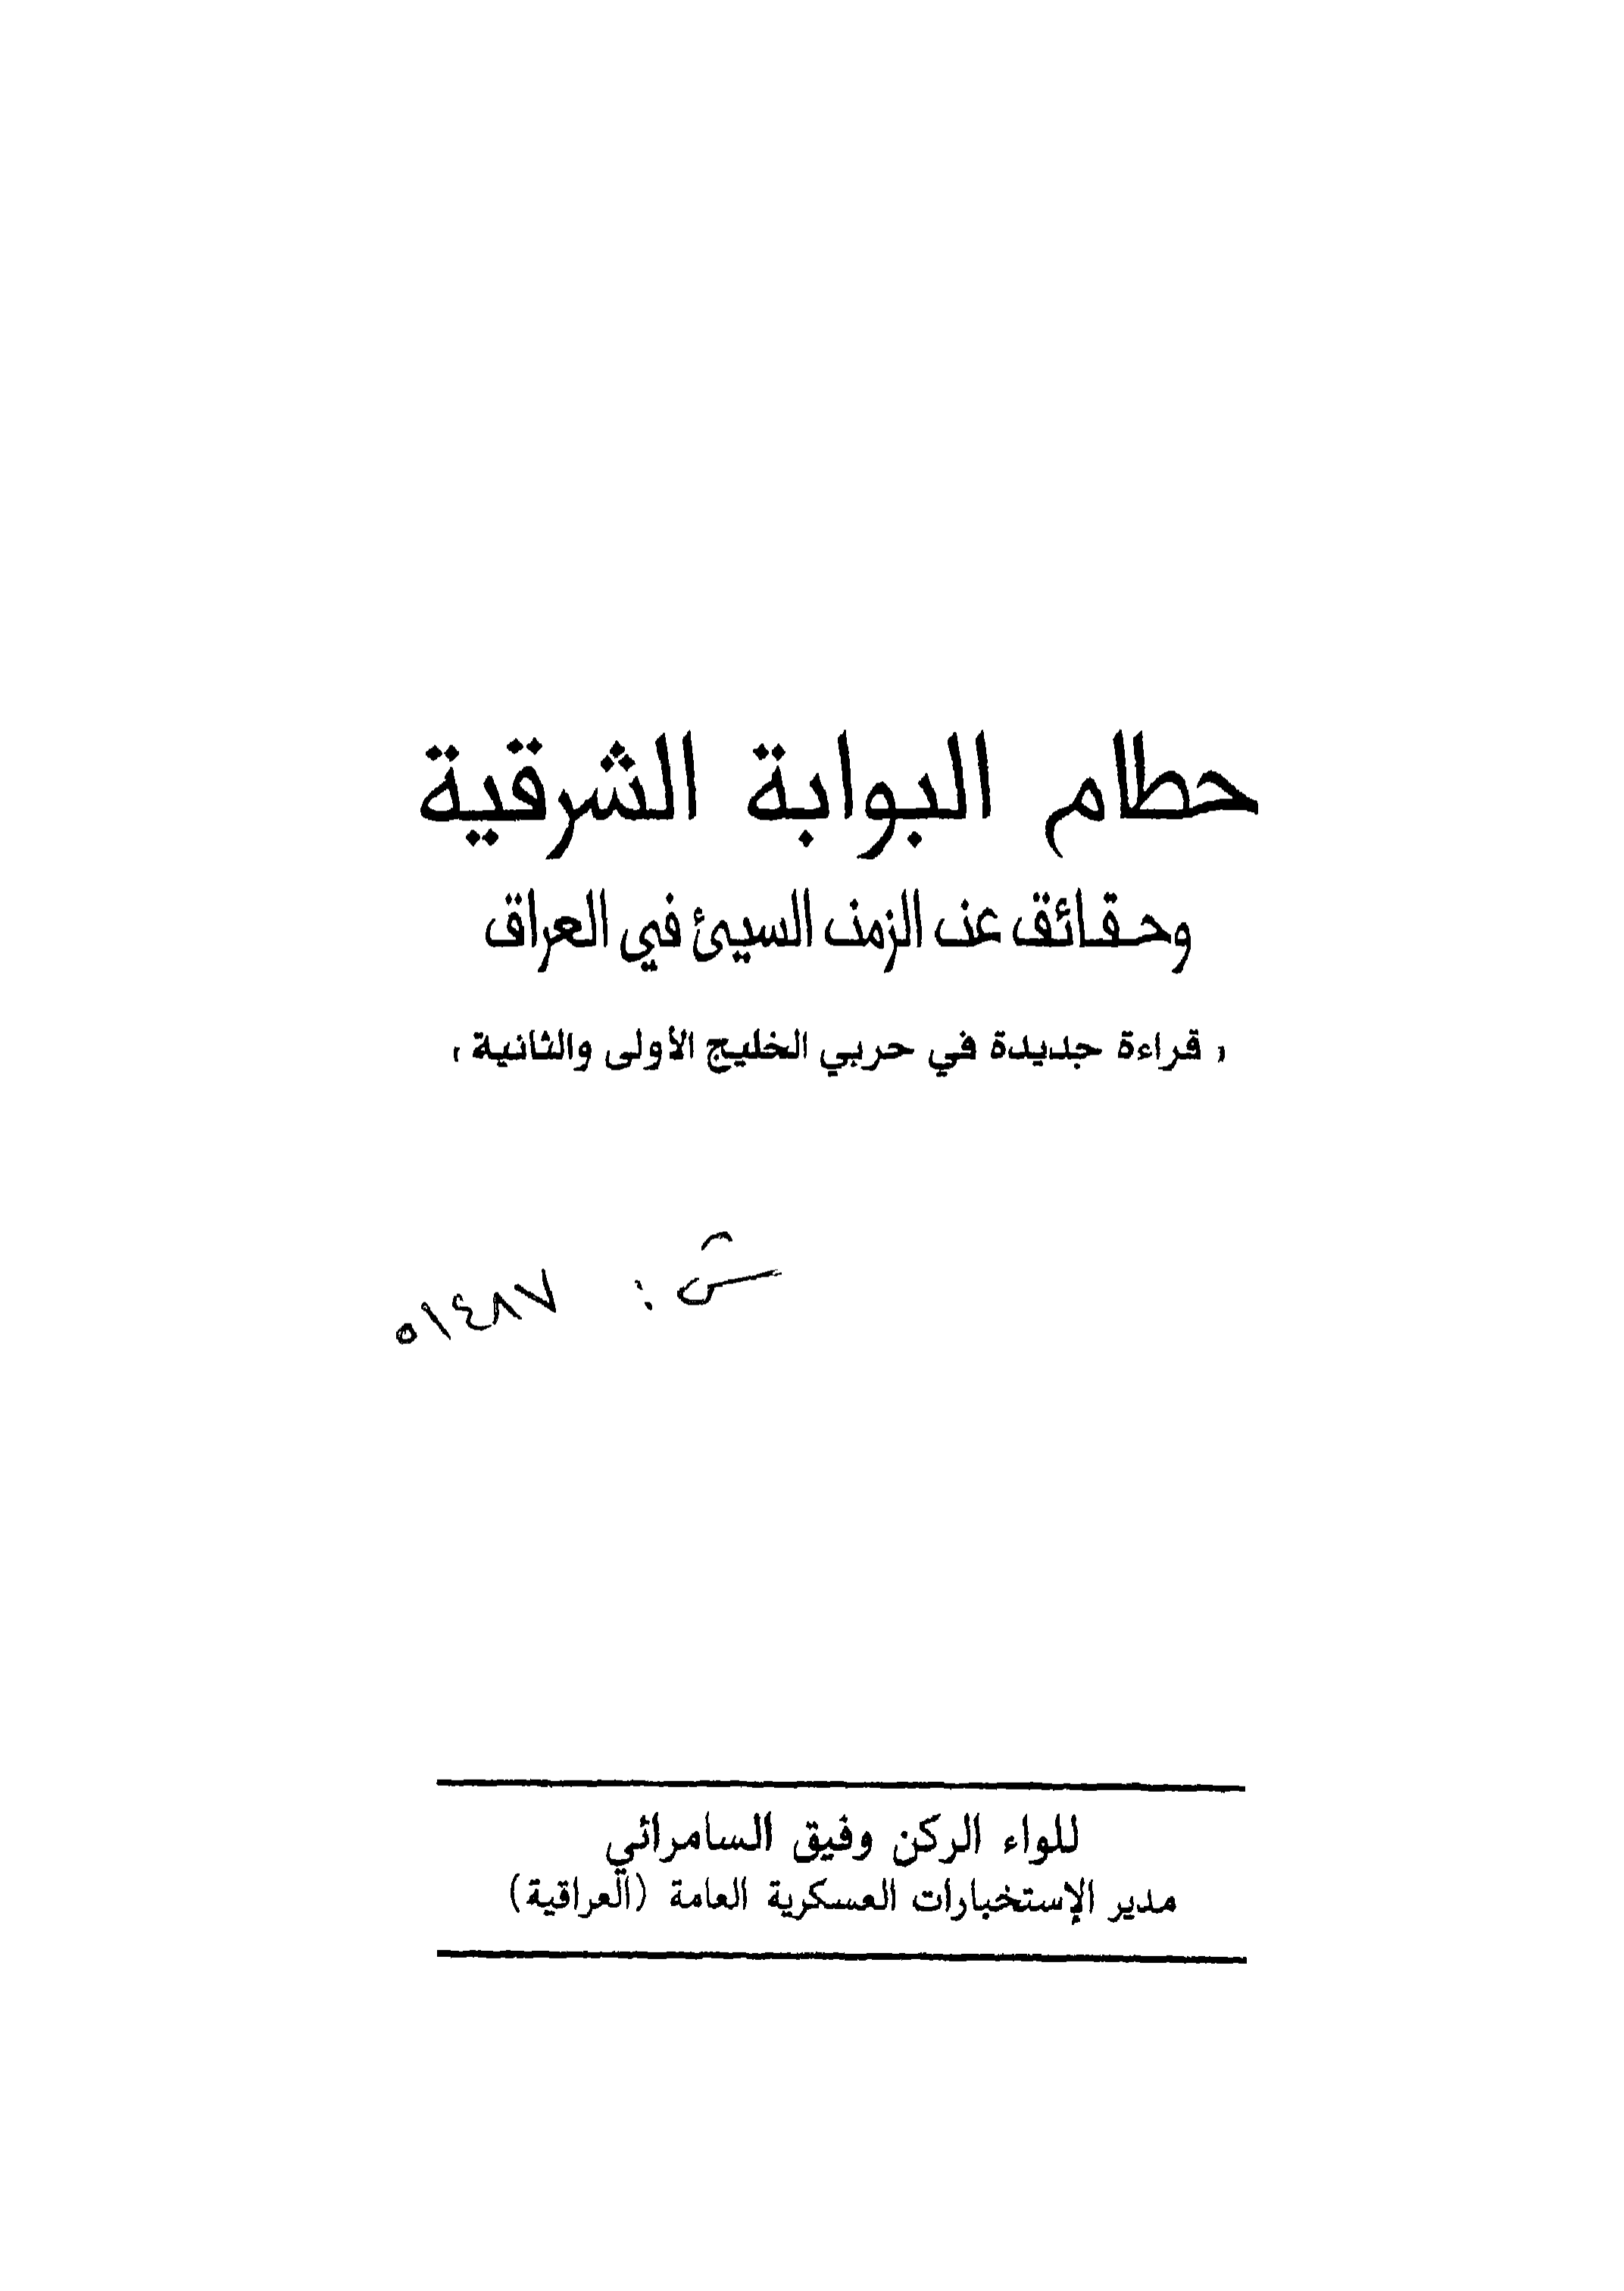 حطام البوابة الشرقية
وحقائق عن الزمن السيئ في العراق
، قراءة جديدة في حربي الخليج الأولى والثانية ،
ش : ٥١٤٨٧
للواء الركن وفيق السامرائي
مدير الإستخبارات العسكرية العامة (العراقية)